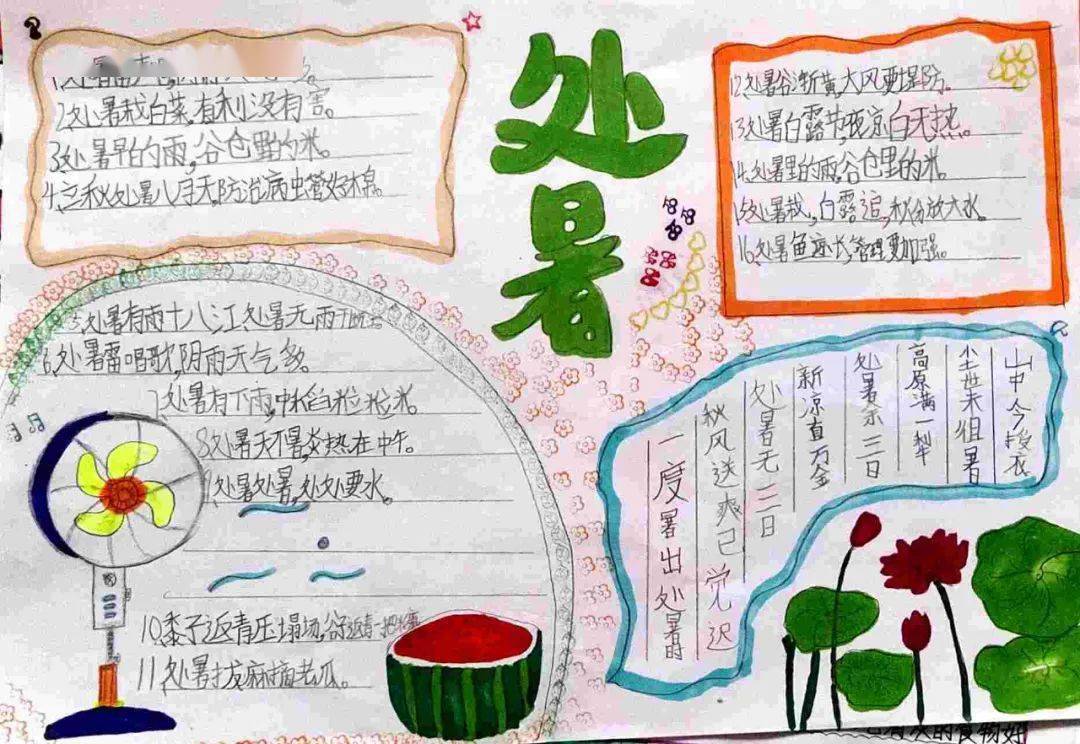 处暑
2、处暑栽白菜,有利没有害。
3、处暑早的雨,谷仓里的米。
4、立秋处暑八月天,防治病虫管好棉。
5、处暑有雨十八江,处暑无雨
6、处暑雷唱歌,阴雨天气多。
7、处暑有下雨,中稻粒粒米。
8、处暑天不暑,炎热在中午。
9、处暑处暑,处处要水。
10、黍子返青压塌场,谷子返青
11、处暑拔麻摘老瓜。
12、处暑谷渐黄,大风要提防。
13、处暑白露节,夜凉白天热。
14、处暑里的雨,谷仓里的米。
15、处暑栽,白露追,秋分放大水。
16、处暑鱼速长,管理要加强。
山中今授衣
尘世未徂暑
高原满一犁
处暑余三日
新凉直万金
处暑无三日
秋风送爽已觉迟
一度暑出处暑时